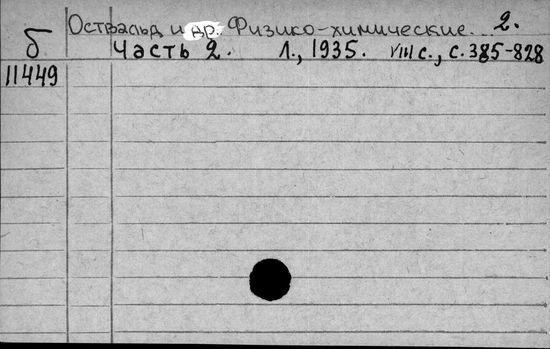 Оствальд и др. Физико-химические... 2.
б Часть 2. Л., 1935. VIII с., с. 385-828
11449